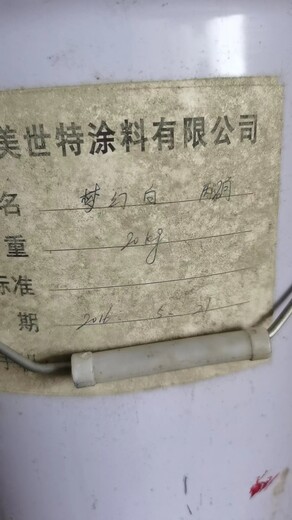 美世特涂料有限公司
名 梦幻白
重 20kg
标准
期 2016.5.21